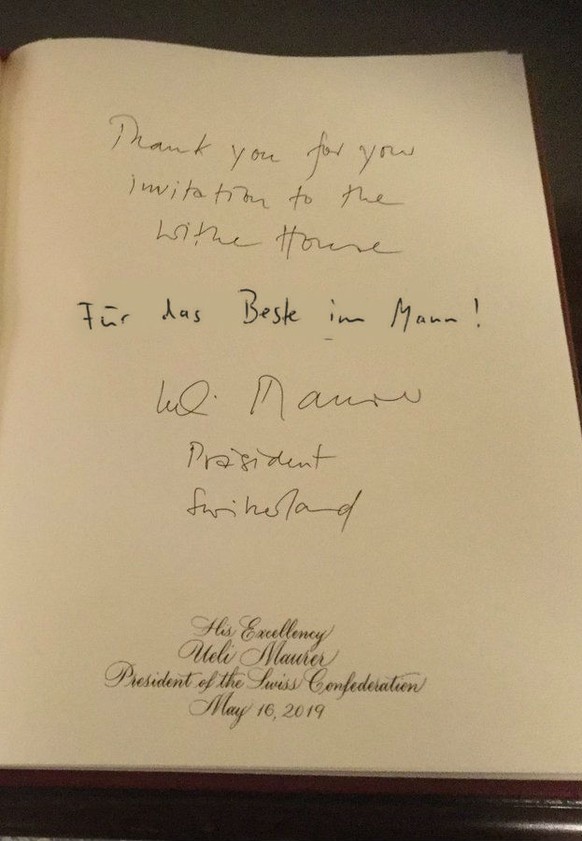 Thank you for your
invitation to the
Withe House
Für das Beste im Mann!
Ueli Maurer
Präsident
Switzerland
His Excellency
Ueli Maurer
President of the Swiss Confederation
May 16, 2019